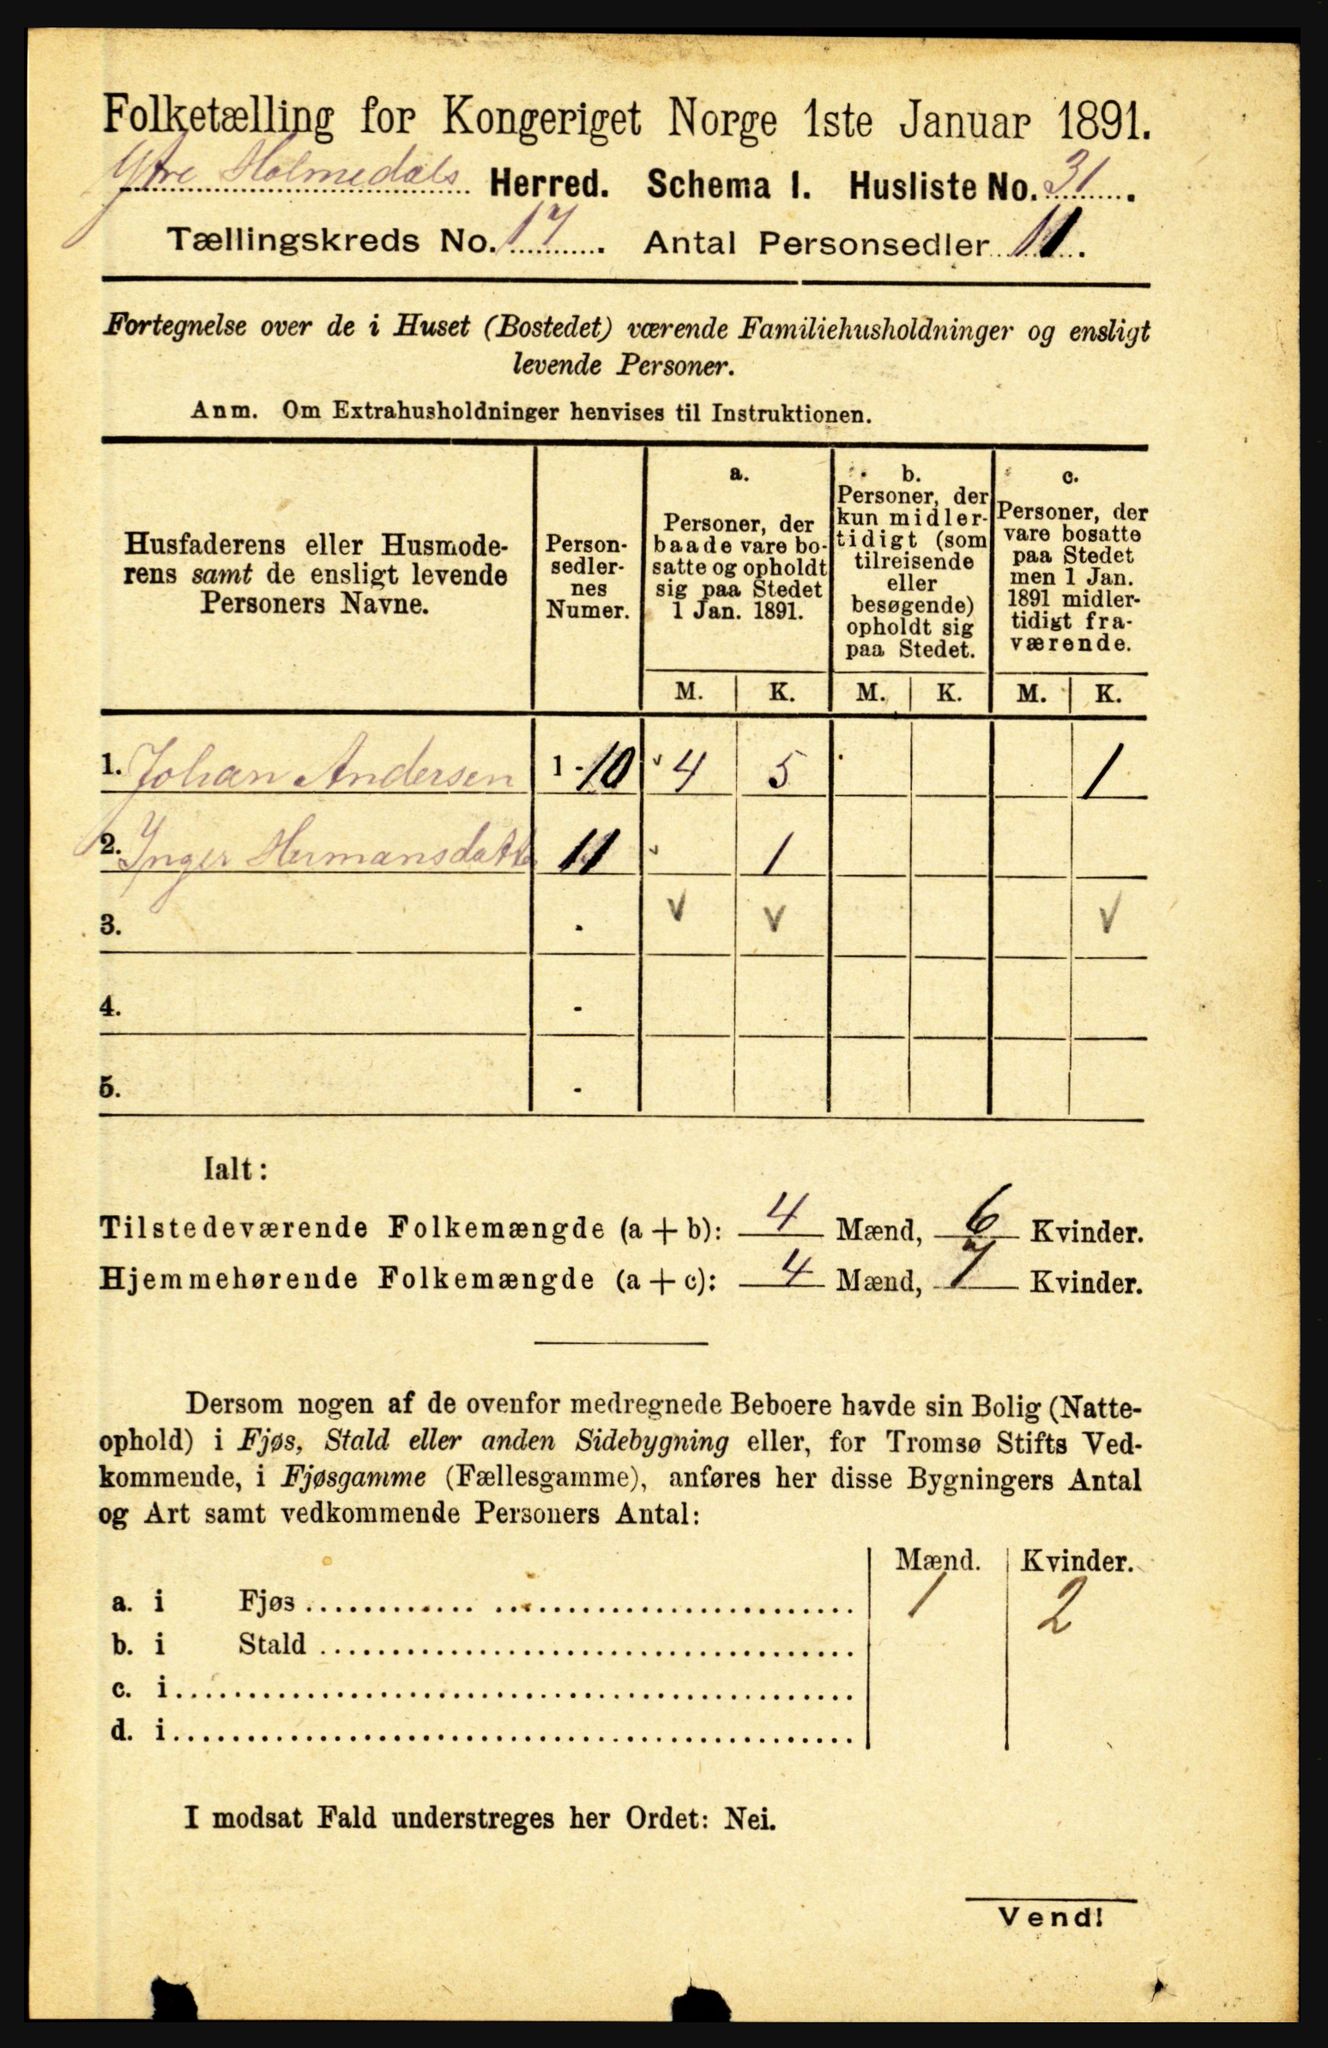 Folketælling for Kongeriget Norge 1ste Januar 1891.
Ytre Holmedals Herred. Schema I. Husliste No. 31.
Tællingskreds No. 17. Antal Personsedler 11.
Fortegnelse over de i Huset (Bostedet) værende Familiehusholdninger og ensligt
levende Personer.
Anm. Om Extrahusholdninger henvises til Instruktionen.
Husfaderens eller Husmode-
rens samt de ensligt levende
Personers Navne.
Person-
sedler-
nes
Numer.
a.
Personer, der
baade vare bo-
satte og opholdt
sig paa Stedet
1 Jan. 1891.
b.
Personer, der
kun midler-
tidigt (som
tilreisende
eller
besøgende)
opholdt sig
paa Stedet.
c.
Personer, der
vare bosatte
paa Stedet
men 1 Jan.
1891 midler-
tidigt fra-
værende.
M. K. M. K. M. K.
1. Johan Andersen 1 - 10 4 5 1
2. Inger Hermansdatter 11 1
3. - v v v
4. -
5. -
Ialt:
Tilstedeværende Folkemængde (a + b): 4 Mænd, 6 Kvinder.
Hjemmehørende Folkemængde (a + c): 4 Mænd, 7 Kvinder.
Dersom nogen af de ovenfor medregnede Beboere havde sin Bolig (Natte-
ophold) i Fjøs, Stald eller anden Sidebygning eller, for Tromsø Stifts Ved-
kommende, i Fjøsgamme (Fællesgamme), anføres her disse Bygningers Antal
og Art samt vedkommende Personers Antal:
Mænd. Kvinder.
a. i Fjøs 1 2
b. i Stald
c. i
d. i
I modsat Fald understreges her Ordet: Nei.
Vend!